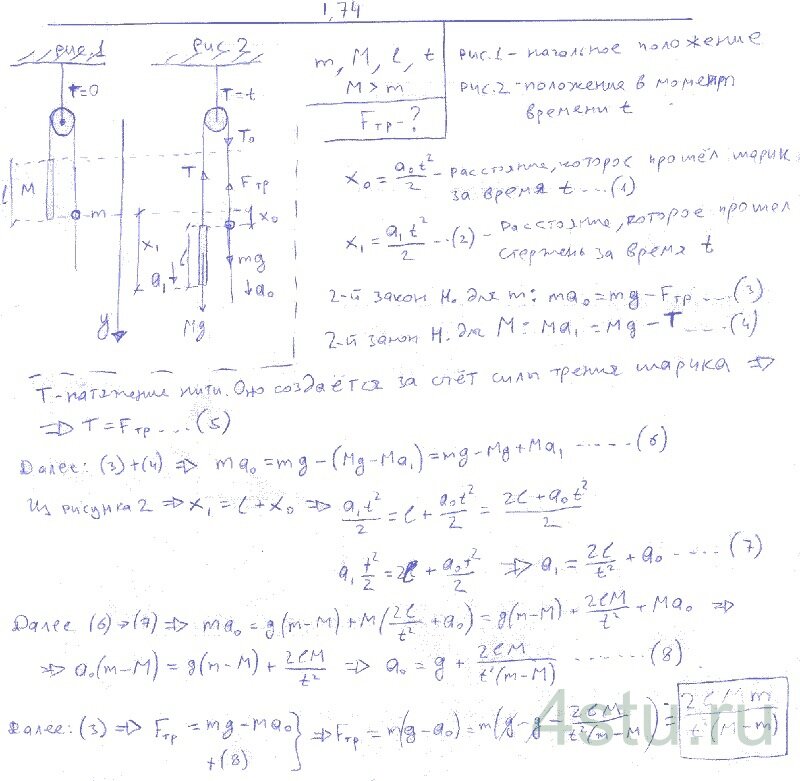 1,74
рис.1
рис 2
m, M, l, t
M > m
Fтр - ?
рис.1 - начальное положение
рис.2 - положение в момент
времени t
T=0
T=t
T₀
T
Fтр
l
M
m
x₀
x₁
l
a₁
mg
a₀
Mg
y
x₀ = a₀t²/2 - расстояние, которое прошёл шарик
за время t ... (1)
x₁ = a₁t²/2 ... (2) - расстояние, которое прошел
стержень за время t
2-й закон Н. для m: ma₀ = mg - Fтр .... (3)
2-й закон Н. для M: Ma₁ = Mg - T .... (4)
T - натяжение нити. Оно создаётся за счёт силы трения шарика ⇒
⇒ T = Fтр .... (5)
Далее: (3)+(4) ⇒ ma₀ = mg - (Mg - Ma₁) = mg - Mg + Ma₁ ...... (6)
Из рисунка 2 ⇒ x₁ = l + x₀ ⇒ a₁t²/2 = l + a₀t²/2 = (2l + a₀t²)/2
a₁ t²/2 = 2l + a₀t²/2 ⇒ a₁ = 2l/t² + a₀ ...... (7)
Далее (6)→(7) ⇒ ma₀ = g(m-M) + M(2l/t² + a₀) = g(m-M) + 2lM/t² + Ma₀ ⇒
⇒ a₀(m-M) = g(m-M) + 2lM/t² ⇒ a₀ = g + 2lM/(t²(m-M)) ........ (8)
Далее: (3) ⇒ Fтр = mg - ma₀
+(8)
} ⇒ Fтр = m(g - a₀) = m(g - g - 2lM/(t²(m-M))) = 2lMm/(t²(M-m))
4stu.ru